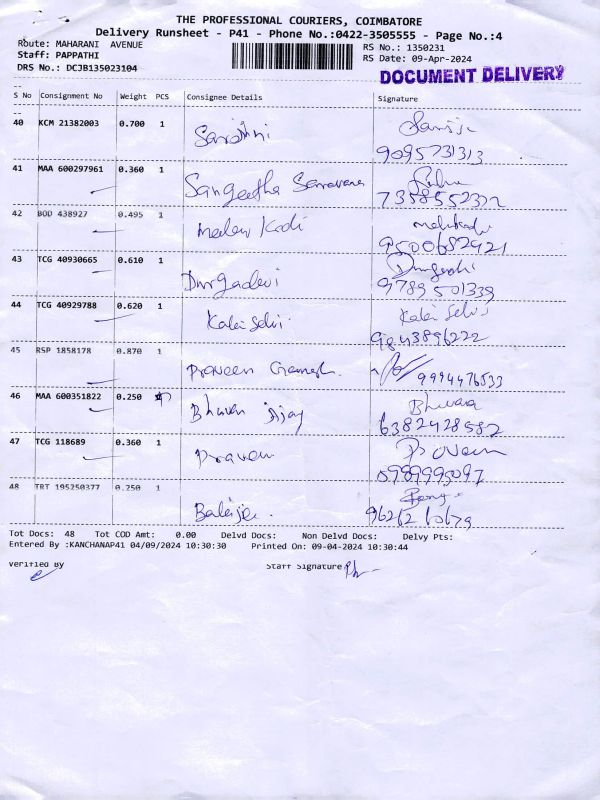 THE PROFESSIONAL COURIERS, COIMBATORE
Delivery Runsheet - P41 - Phone No.:0422-3505555 - Page No.:4
Route: MAHARANI AVENUE RS No.: 1350231
Staff: PAPPATHI RS Date: 09-Apr-2024
DRS No.: DCJB135023104 DOCUMENT DELIVERY
S No Consignment No Weight PCS Consignee Details Signature
40 KCM 21382003 0.700 1
9095731313
41 MAA 600297961 0.360 1 Sangeetha Saravana
7358552322
42 BOD 438927 0.495 1
9500682421
43 TCG 40930665 0.610 1 Durgadevi
9789501339
44 TCG 40929788 0.620 1 Kalai Selvi Kalai Selvi
9843896222
45 RSP 1858178 0.870 1 Praveen
9994476533
46 MAA 600351822 0.250 Bhuvan
6382428582
47 TCG 118689 0.360 1 Praveen
48 TRT 195250377 0.250 1 Balaji
Tot Docs: 48 Tot COD Amt: 0.00 Delvd Docs: Non Delvd Docs: Delvy Pts:
Entered By :KANCHANAP41 04/09/2024 10:30:30 Printed On: 09-04-2024 10:30:44
Verified By Staff Signature